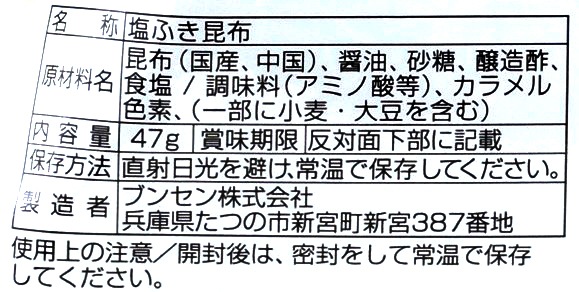 名称 塩ふき昆布
原材料名 昆布(国産、中国)、醤油、砂糖、醸造酢、
食塩 / 調味料(アミノ酸等)、カラメル
色素、(一部に小麦・大豆を含む)
内容量 47g 賞味期限 反対面下部に記載
保存方法 直射日光を避け、常温で保存してください。
製造者 ブンセン株式会社
兵庫県たつの市新宮町新宮387番地
使用上の注意/開封後は、密封をして常温で保存
してください。